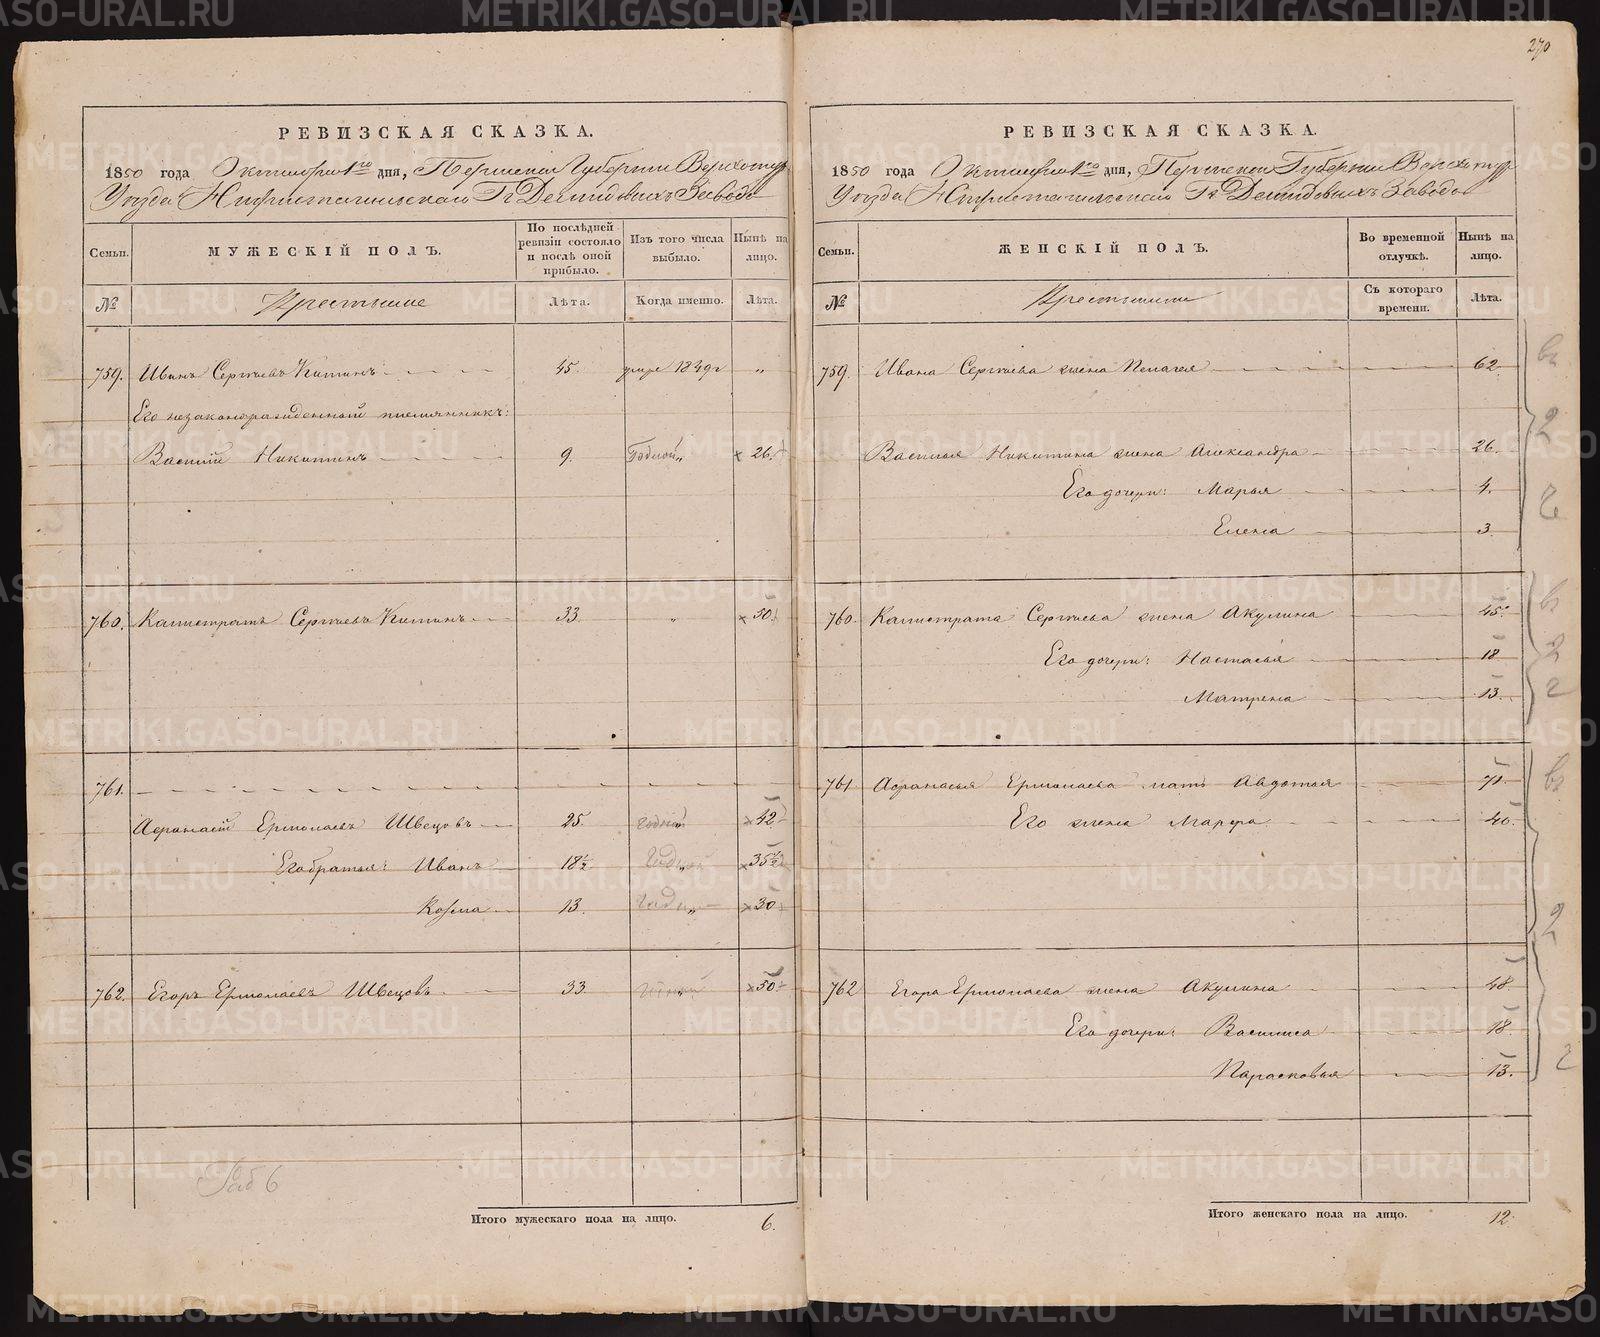 270
РЕВИЗСКАЯ СКАЗКА.
1850 года Октября 1го дня, Пермской Губернии Верхотур
Уезда Нижнетагильскаго Гг Демидовыхъ Завода
Семьи.
МУЖЕСКІЙ ПОЛЪ.
По послѣдней ревизіи состояло и послѣ оной прибыло.
Изъ того числа выбыло.
Нынѣ на лицо.
№
Крестьяне
Лѣта.
Когда именно.
Лѣта.
759. Иванъ Сергѣевъ Китинъ 45. умре 1849г „
Его незаконорожденный племянникъ:
Василій Никитинъ 9. Годной „ × 26.
760. Калистратъ Сергѣевъ Китинъ 33. „ × 50.
761.
Афанасій Ермолаевъ Швецовъ 25. годный „ × 42.
Его братья: Иванъ 18½ „ × 35½
Козма 13. „ × 30.
762. Егоръ Ермолаевъ Швецовъ 33. „ × 50.
Раб 6
Итого мужескаго пола на лицо. 6.
РЕВИЗСКАЯ СКАЗКА.
1850 года Октября 1го дня, Пермской Губерніи Верхотур
Уезда Нижнетагильскаго Гг Демидовыхъ Завода
Семьи.
ЖЕНСКІЙ ПОЛЪ.
Во временной отлучкѣ.
Нынѣ на лицо.
№
Крестьянки
Съ котораго времени.
Лѣта.
759. Ивана Сергѣева жена Пелагея 62.
Василья Никитина жена Александра 26.
Его дочери: Марья 4.
Елена 3.
760. Калистрата Сергѣева жена Акулина 45.
Его дочери: Настасья 18
Матрена 13.
761 Афанасья Ермолаева мать Авдотья 71.
Его жена Марфа 40.
762 Егора Ермолаева жена Акулина 48.
Его дочери: Василиса 18.
Парасковья 13.
Итого женскаго пола на лицо. 12.
METRIKI.GASO-URAL.RU